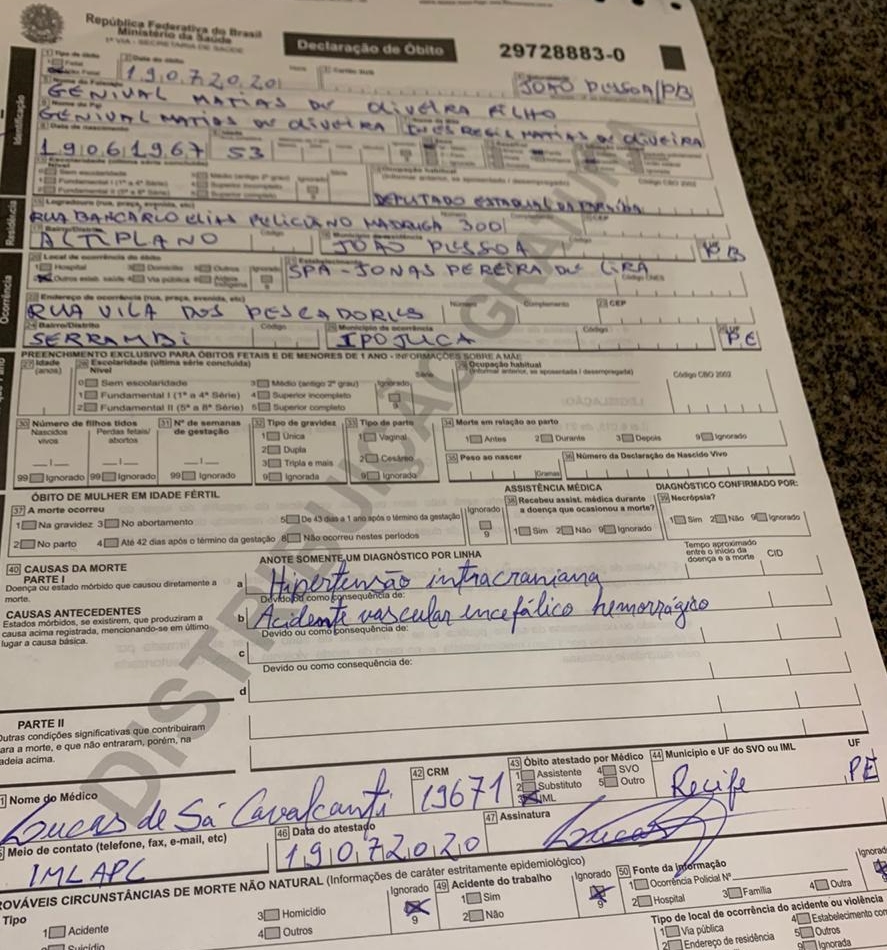 República Federativa do Brasil
Ministério da Saúde
1ª VIA - SECRETARIA DE SAÚDE
Declaração de Óbito 29728883-0
Identificação
1 Tipo de óbito 2 Data do óbito 3 Cartão SUS
1 9 0 7 2 0 2 0 JOÃO PESSOA/PB
GENIVAL MATIAS DE OLIVEIRA FILHO
Nome do Pai
GENIVAL MATIAS DE OLIVEIRA INÊS REGIS MATIAS DE OLIVEIRA
Data de nascimento
1 9 0 6 1 9 6 7 53
Escolaridade (última série concluída)
Nível
Sem escolaridade Médio (antigo 2º grau) Ignorado Código CBO 2002
Fundamental I (1ª a 4ª Série) Superior incompleto
Fundamental II (5ª a 8ª Série) Superior completo
DEPUTADO ESTADUAL DA PARAÍBA
Residência
Logradouro (rua, praça, avenida, etc) Número CEP
RUA BANCARIO ELIAS FELICIANO MADRUGA 300
Bairro/Distrito Código
ALTIPLANO JOÃO PESSOA PB
Ocorrência
Local de ocorrência do óbito
1 Hospital 3 Domicílio 5 Outros Ignorado
Outros estab. saúde 4 Via pública
SPA - JONAS PEREIRA DE LIRA
Endereço de ocorrência (rua, praça, avenida, etc) Número Complemento CEP
RUA VILA DOS PESCADORES
Bairro/Distrito Código Município de ocorrência Código
SERRAMBI IPOJUCA PE
PREENCHIMENTO EXCLUSIVO PARA ÓBITOS FETAIS E DE MENORES DE 1 ANO - INFORMAÇÕES SOBRE A MÃE
27 Idade (anos) 28 Escolaridade (última série concluída) 29 Ocupação habitual
Nível Série (informar anterior, se aposentada / desempregada) Código CBO 2002
0 Sem escolaridade 3 Médio (antigo 2º grau) Ignorado
1 Fundamental I (1ª a 4ª Série) 4 Superior incompleto 9
2 Fundamental II (5ª a 8ª Série) 5 Superior completo
30 Número de filhos tidos 31 Nº de semanas de gestação 32 Tipo de gravidez 33 Tipo de parto 34 Morte em relação ao parto
Nascidos vivos Perdas fetais/ abortos 1 Única 1 Vaginal 1 Antes 2 Durante 3 Depois 9 Ignorado
2 Dupla 2 Cesáreo 35 Peso ao nascer 36 Número da Declaração de Nascido Vivo
3 Tripla e mais
99 Ignorado 99 Ignorado 99 Ignorado 9 Ignorada 9 Ignorado Gramas
ÓBITO DE MULHER EM IDADE FÉRTIL ASSISTÊNCIA MÉDICA DIAGNÓSTICO CONFIRMADO POR:
37 A morte ocorreu Ignorado 38 Recebeu assist. médica durante a doença que ocasionou a morte? 39 Necrópsia?
1 Na gravidez 3 No abortamento 5 De 43 dias a 1 ano após o término da gestação 9
2 No parto 4 Até 42 dias após o término da gestação 8 Não ocorreu nestes períodos 1 Sim 2 Não 9 Ignorado 1 Sim 2 Não 9 Ignorado
40 CAUSAS DA MORTE ANOTE SOMENTE UM DIAGNÓSTICO POR LINHA Tempo aproximado entre o início da doença e a morte CID
PARTE I
Doença ou estado mórbido que causou diretamente a morte.
a Hipertensão intracraniana
Devido ou como consequência de:
CAUSAS ANTECEDENTES
Estados mórbidos, se existirem, que produziram a causa acima registrada, mencionando-se em último lugar a causa básica.
b Acidente vascular encefálico hemorrágico
Devido ou como consequência de:
c
Devido ou como consequência de:
d
PARTE II
Outras condições significativas que contribuiram para a morte, e que não entraram, porém, na cadeia acima.
Nome do Médico 42 CRM 43 Óbito atestado por Médico 44 Município e UF do SVO ou IML UF
Lucas de Sá Cavalcanti 19671 1 Assistente 4 SVO Recife PE
2 Substituto 5 Outro
3 IML
Meio de contato (telefone, fax, e-mail, etc) 46 Data do atestado 47 Assinatura
IMLAPC 1 9 0 7 2 0 2 0 Lucas
PROVÁVEIS CIRCUNSTÂNCIAS DE MORTE NÃO NATURAL (Informações de caráter estritamente epidemiológico)
Tipo Ignorado 49 Acidente do trabalho Ignorado 50 Fonte da informação Ignorada
1 Acidente 3 Homicídio 9 1 Sim 9 1 Ocorrência Policial Nº
Suicídio 4 Outros 2 Não 2 Hospital 3 Família 4 Outra
Tipo de local de ocorrência do acidente ou violência
1 Via pública 4 Estabelecimento com
2 Endereço de residência 5 Outros
9 Ignorada
DISTRIBUIÇÃO GRATUITA